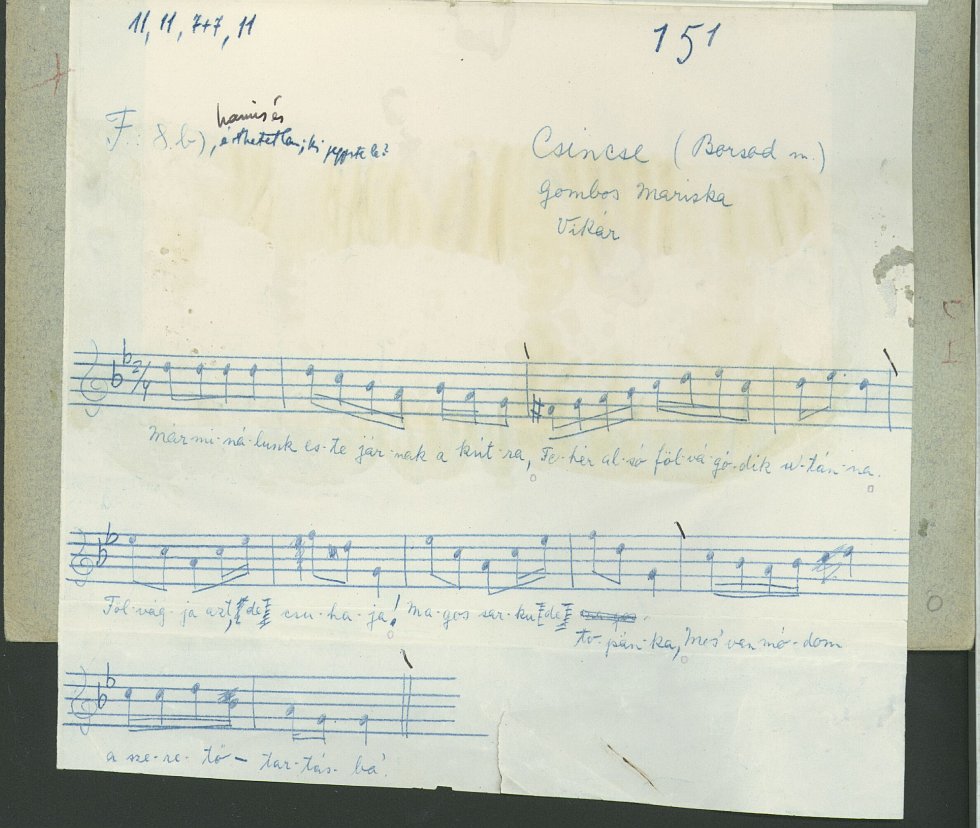 11, 11, 7+7, 11
151
F. 8. b), hamis és
érthetetlen; ki jegyezte le?
Csincse (Borsod m.)
Gombos Mariska
Vikár
2/4
Már mi-ná-lunk es-te jár-nak a kút-ra, Fe-hér al-só föl-vá-gó-dik u-tán-na.
Föl-vág-ja azt, de csu-ha-ja! Ma-gos sar-ku de
to-pán-ka, Mer' van mó-dom
a sze-re-tő-tar-tás-ba'.